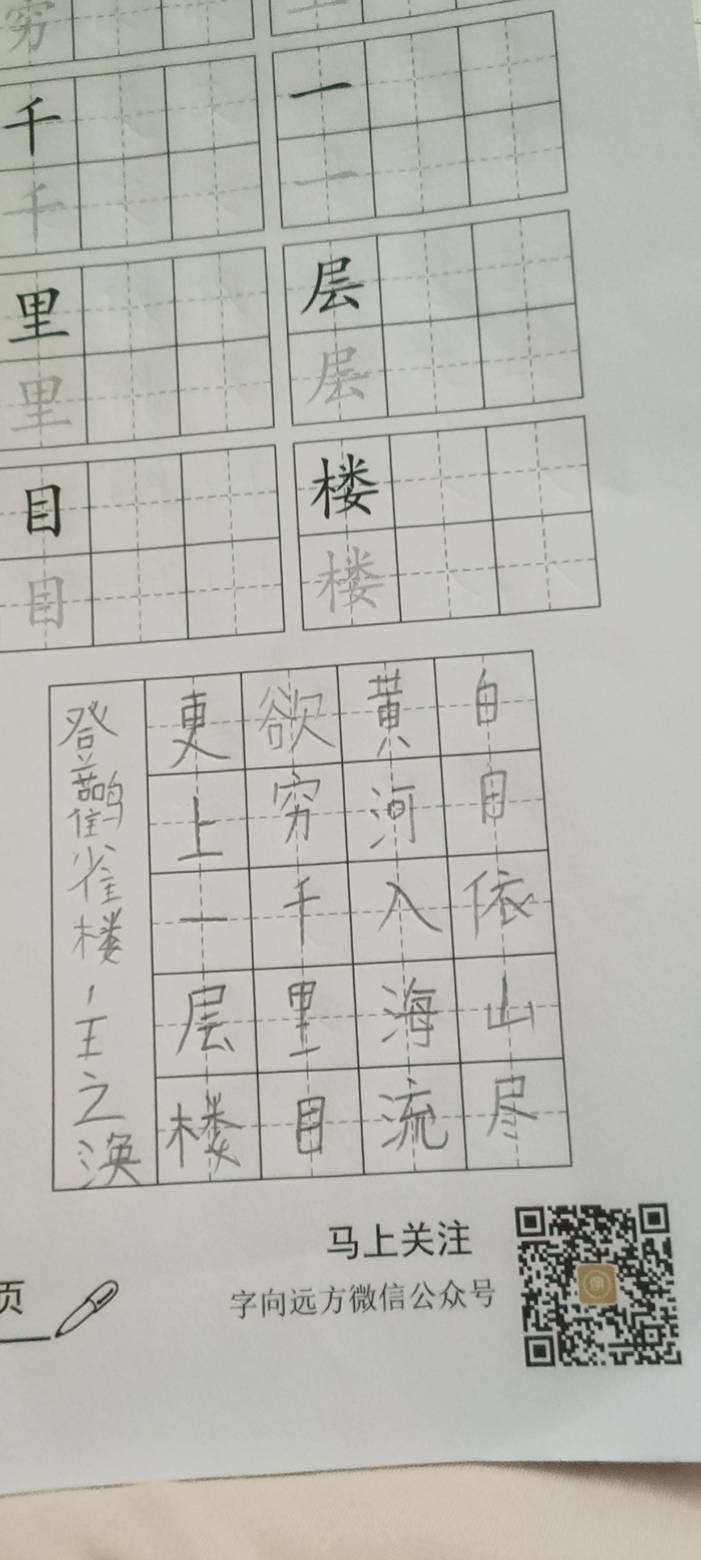 穷
上
千
一
千
一
里
层
里
层
目
楼
目
楼
白日依山尽
黄河入海流
欲穷千里目
更上一层楼
登鹳雀楼，王之涣
马上关注
字向远方微信公众号
页